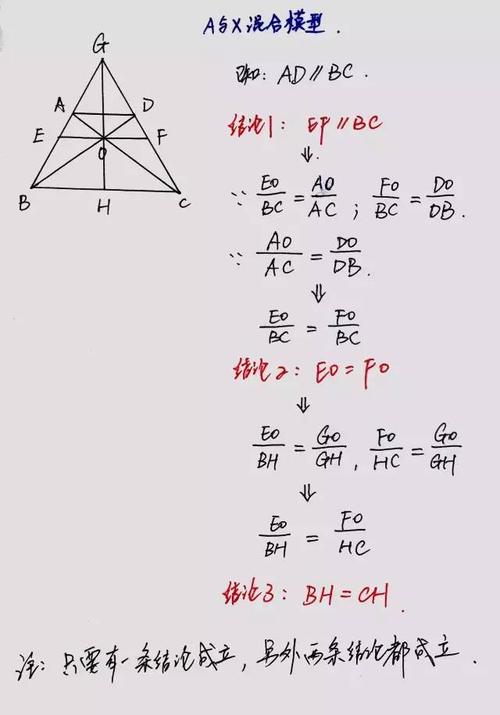 A与X混合模型.
G
A
D
E
F
O
B
H
C
已知: AD∥BC.
结论1: EF∥BC
⇓
∵ EO/BC = AO/AC ; FO/BC = DO/DB.
∵ AO/AC = DO/DB.
⇓
EO/BC = FO/BC
结论2: EO=FO
⇓
EO/BH = GO/GH , FO/HC = GO/GH
⇓
EO/BH = FO/HC
结论3: BH=CH.
注: 只需有一条结论成立, 另外两条结论都成立.